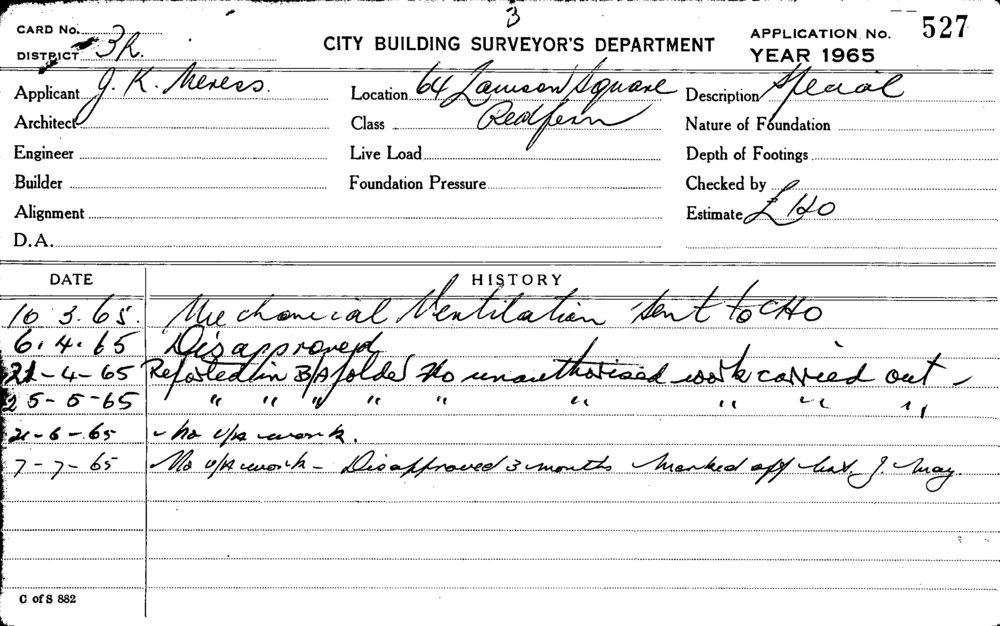 3
CARD No.
DISTRICT 3R.
CITY BUILDING SURVEYOR'S DEPARTMENT
APPLICATION No. 527
YEAR 1965
Applicant J. K. Meress.
Location 64 Lawson Square
Redfern
Description Special
Architect
Class
Nature of Foundation
Engineer
Live Load
Depth of Footings
Builder
Foundation Pressure
Checked by
Alignment
Estimate £140
D.A.
DATE
HISTORY
10 3.65. Mechanical Ventilation sent to CHO
6.4.65 Disapproved
21-4-65 Reported in B/A folder No unauthorised work carried out -
25-5-65 " " " " " " " " "
21-6-65 - No u/a work.
7-7-65 No u/a work - Disapproved 3 months Marked off list. J. May.
C of S 882